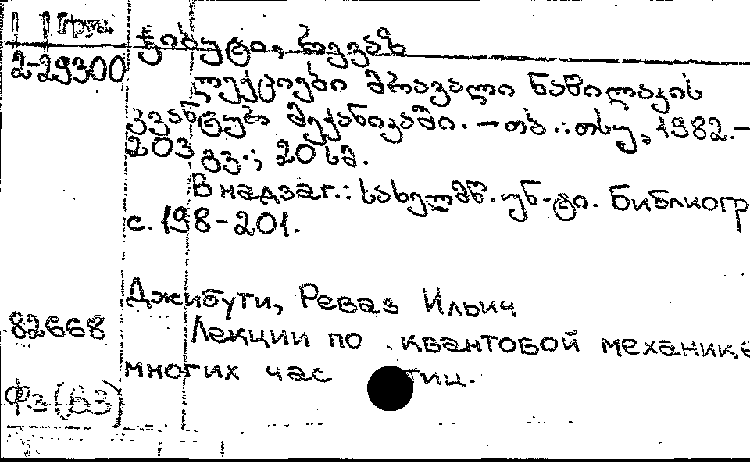 Груз.
ჯიბუტი, რევაზ
2-29300
ლექციები მრავალი ნაწილაკის
კვანტურ მექანიკაში. – თბ.: თსუ, 1982.–
203 გვ.; 20 სმ.
В надзаг.: სახელმწ. უნ-ტი. Библиогр
с. 198-201.
Джибути, Реваз Ильич
82668
Лекции по квантовой механике
многих час тиц.
Фз(В3)